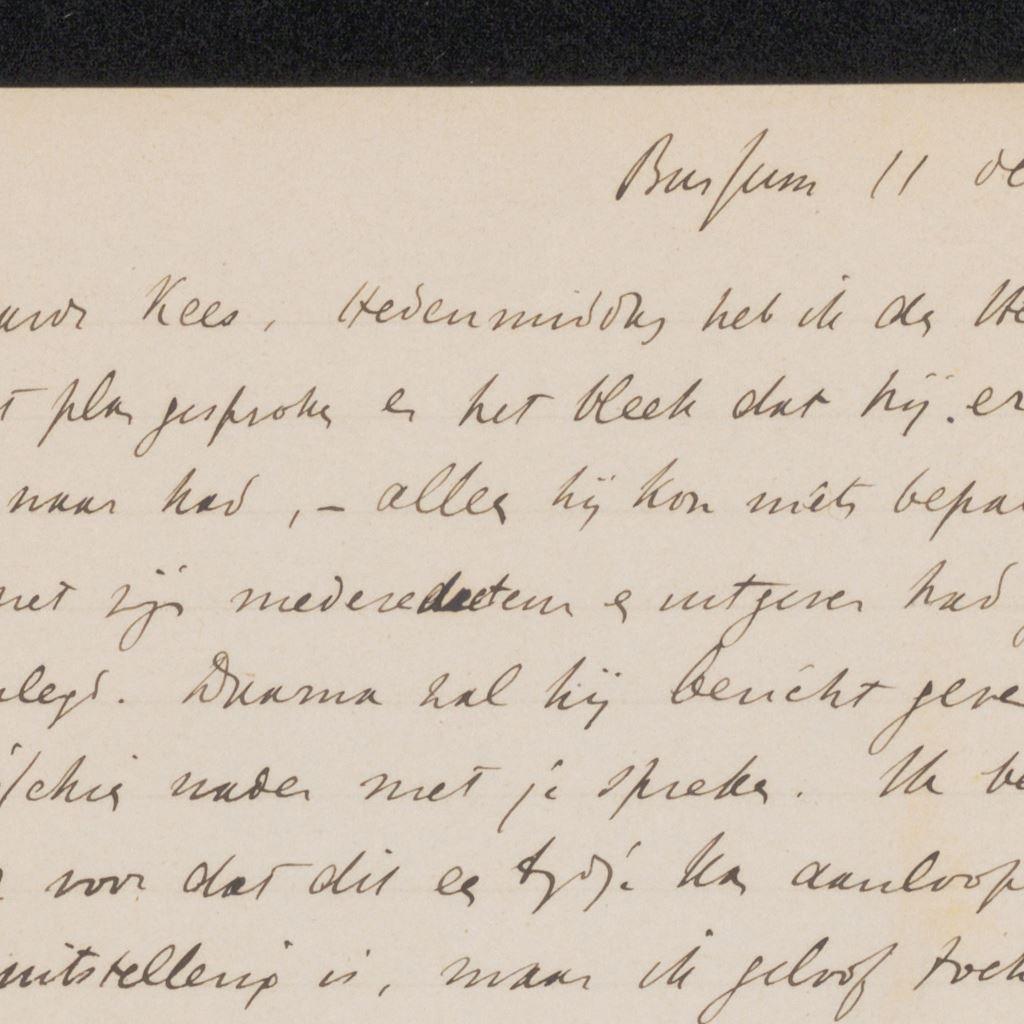 Bussum 11 de
Kees, Hedenmiddag heb ik de He
t plan gesproken en het bleek dat hij er
naar had, – alleen hij kon niets bepa
met zijn mederedacteur en uitgever had
legd. Daarna zal hij bericht geve
schien nader met je spreken. Ik be
voor dat dit een tijdje kan aanloop
uitstelling is, maar ik geloof toch